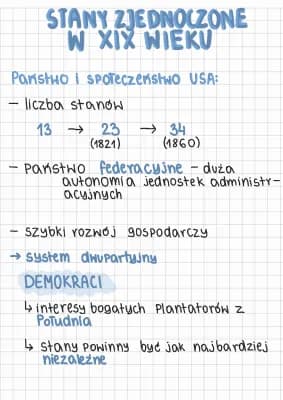 STANY ZJEDNOCZONE
W XIX WIEKU
Państwo i społeczeństwo USA:
– liczba stanów
13 → 23 → 34
(1821) (1860)
– państwo federacyjne – duża
autonomia jednostek administr-
acyjnych
– szybki rozwój gospodarczy
→ system dwupartyjny
DEMOKRACI
↳ interesy bogatych plantatorów z
Południa
↳ stany powinny być jak najbardziej
niezależne